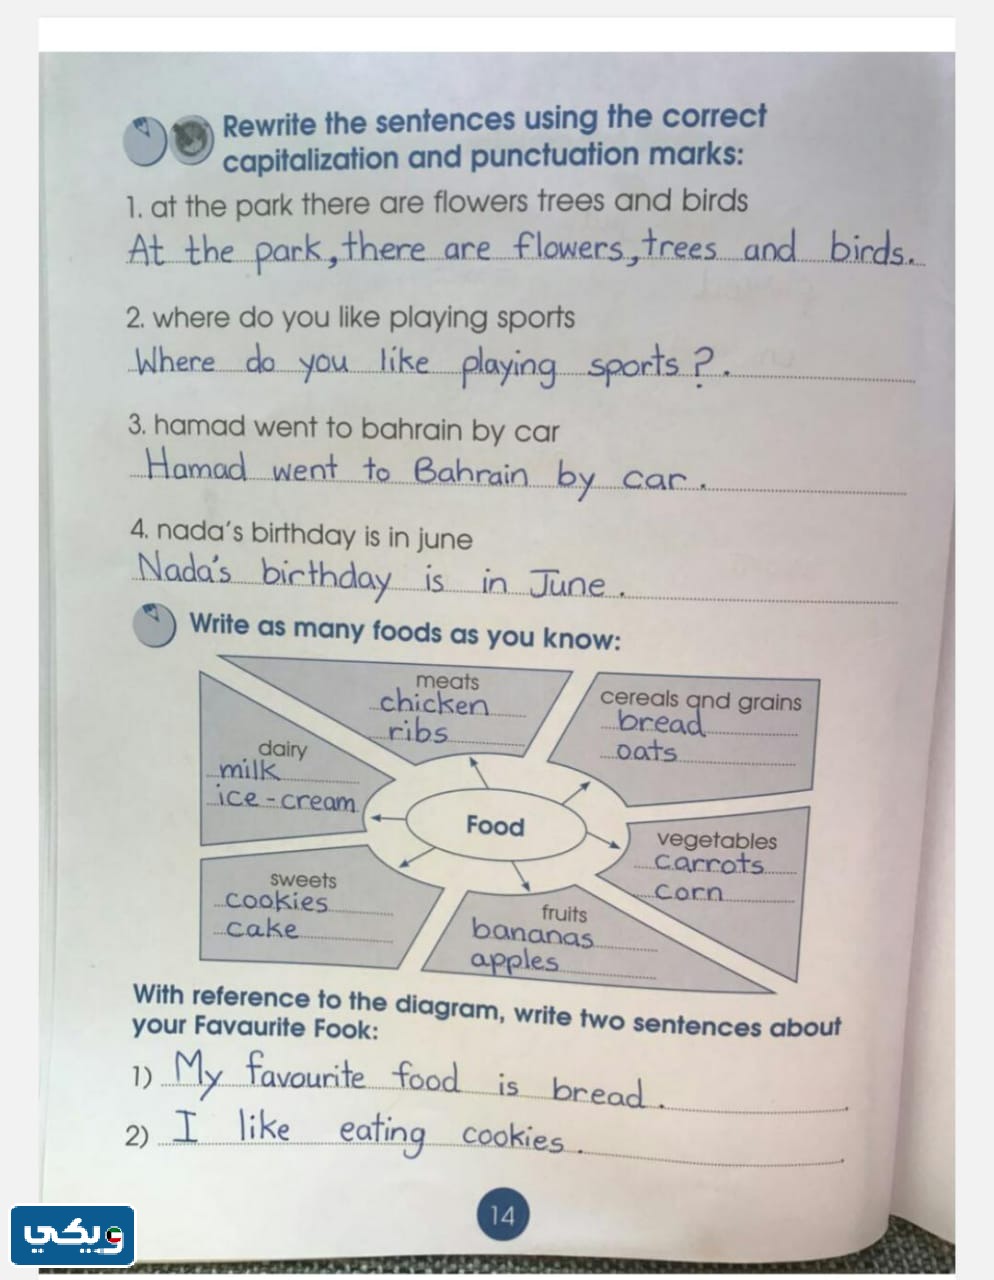 Rewrite the sentences using the correct
capitalization and punctuation marks:
1. at the park there are flowers trees and birds
At the park, there are flowers, trees and birds.
2. where do you like playing sports
Where do you like playing sports?.
3. hamad went to bahrain by car
Hamad went to Bahrain by car.
4. nada's birthday is in june
Nada's birthday is in June.
Write as many foods as you know:
meats
chicken
ribs
cereals and grains
bread
oats
dairy
milk
ice-cream
Food
vegetables
carrots
corn
sweets
cookies
cake
fruits
bananas
apples
With reference to the diagram, write two sentences about
your Favaurite Fook:
1) My favourite food is bread.
2) I like eating cookies.
14
ويكي